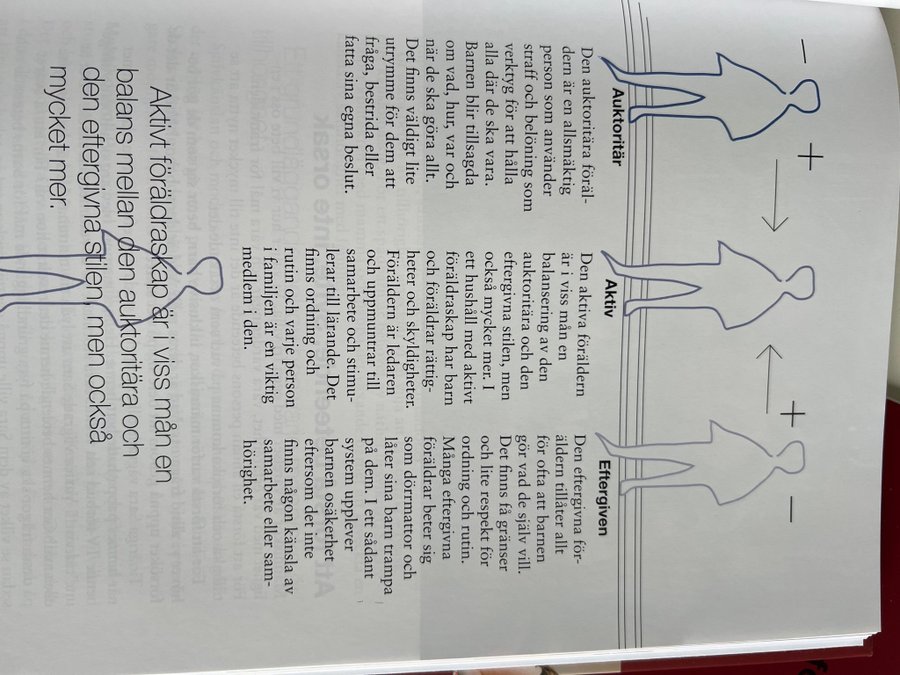 Auktoritär
Den auktoritära föräl-
dern är en allsmäktig
person som använder
straff och belöning som
verktyg för att hålla
alla där de ska vara.
Barnen blir tillsagda
om vad, hur, var och
när de ska göra allt.
Det finns väldigt lite
utrymme för dem att
fråga, bestrida eller
fatta sina egna beslut.
Aktiv
Den aktiva föräldern
är i viss mån en
balansering av den
auktoritära och den
eftergivna stilen, men
också mycket mer. I
ett hushåll med aktivt
föräldraskap har barn
och föräldrar rättig-
heter och skyldigheter.
Föräldern är ledaren
och uppmuntrar till
samarbete och stimu-
lerar till lärande. Det
finns ordning och
rutin och varje person
i familjen är en viktig
medlem i den.
Eftergiven
Den eftergivna för-
äldern tillåter allt
för ofta att barnen
gör vad de själv vill.
Det finns få gränser
och lite respekt för
ordning och rutin.
Många eftergivna
föräldrar beter sig
som dörrmattor och
låter sina barn trampa
på dem. I ett sådant
system upplever
barnen osäkerhet
eftersom det inte
finns någon känsla av
samarbete eller sam-
hörighet.
Aktivt föräldraskap är i viss mån en
balans mellan den auktoritära och
den eftergivna stilen, men också
mycket mer.